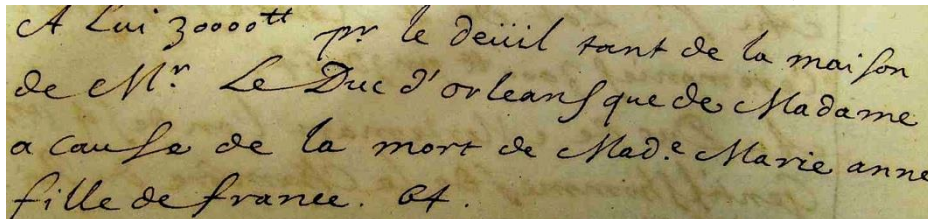 A Lui 30000tt pr le deüil tant de la maison
de Mr. Le Duc d'orleans que de Madame
a cause de la mort de Made. Marie anne
fille de france. 64.